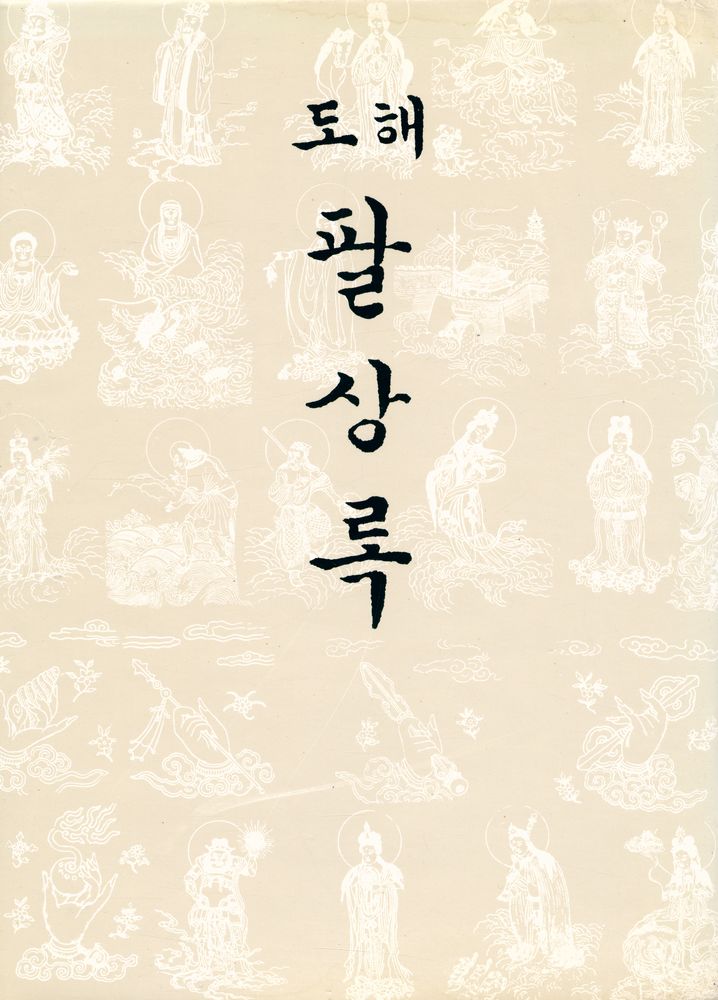 도해
팔상록